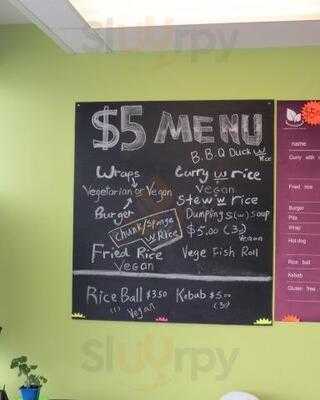 $5 MENU
B.B.Q Duck w
Rice
Wraps
Vegetarian or Vegan
Burger
Chunk/Sponge
w Rice
Fried Rice
Vegan
Curry w rice
Vegan
Stew w rice
Dumpling S(w) Soup
$5.00 (3)
Vegan
Vege Fish Roll
Rice Ball $3.50
(1) Vegan
Kebab $5.00
(3)
name
Curry with
Fried rice
Burger
Pita
Wrap
Hotdog
Rice ball
Kebab
Gluten free
Sluyrpy
Sluyrpy